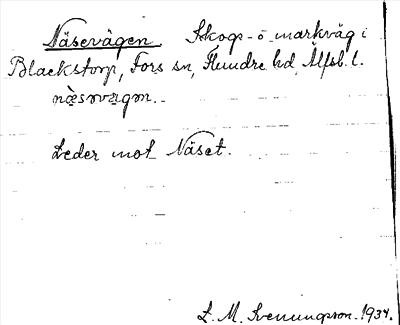 Näsevägen. Skogs- o. markväg i
Blackstorp, Fors sn, Flundre hd, Älfsb. l.
Leder mot Näset.
L. M. Svenungsson. 1934.